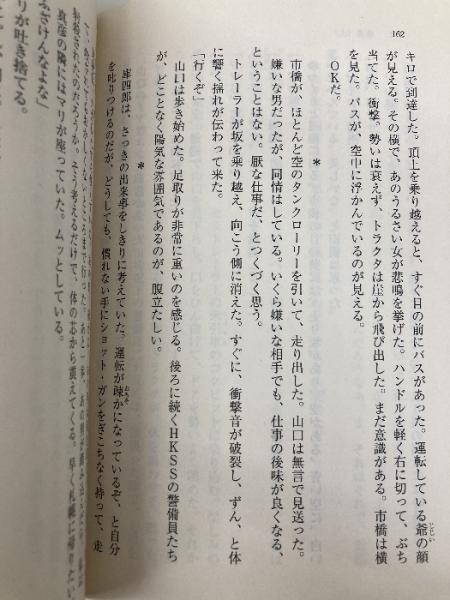 162
キロで到達した。頂上を乗り越えると、すぐ目の前にバスがあった。運転している爺の顔
が見える。その横で、あのうるさい女が悲鳴を挙げた。ハンドルを軽く右に切って、ぶち
当てた。衝撃。勢いは衰えず、トラクタは崖から飛び出した。まだ意識がある。市橋は横
を見た。バスが、空中に浮かんでいるのが見える。
OKだ。
*
市橋が、ほとんど空のタンクローリーを引いて、走り出した。山口は無言で見送った。
嫌いな男だったが、同情はしている。いくら嫌いな相手でも、仕事の後味が良くなる、
ということはない。厭な仕事だ、とつくづく思う。
トレーラーが坂を乗り越え、向こう側に消えた。すぐに、衝撃音が破裂し、ずん、と体
に響く揺れが伝わって来た。
「行くぞ」
山口は歩き始めた。足取りが非常に重いのを感じる。後ろに続くHKSSの警備員たち
が、どことなく陽気な雰囲気であるのが、腹立たしい。
*
雄四郎は、さっきの出来事をしきりに考えていた。運転が疎かになっているぞ、と自分
を叱りつけるのだが、どうしても、慣れない手にショット・ガンをぎこちなく持って、走
そう考えるだけで、体の芯から震えてくる。早く札幌に帰りたい
真彦の隣にはマリが座っていた。ムッとしている。
ふざけんなよな」
リが吐き捨てる。